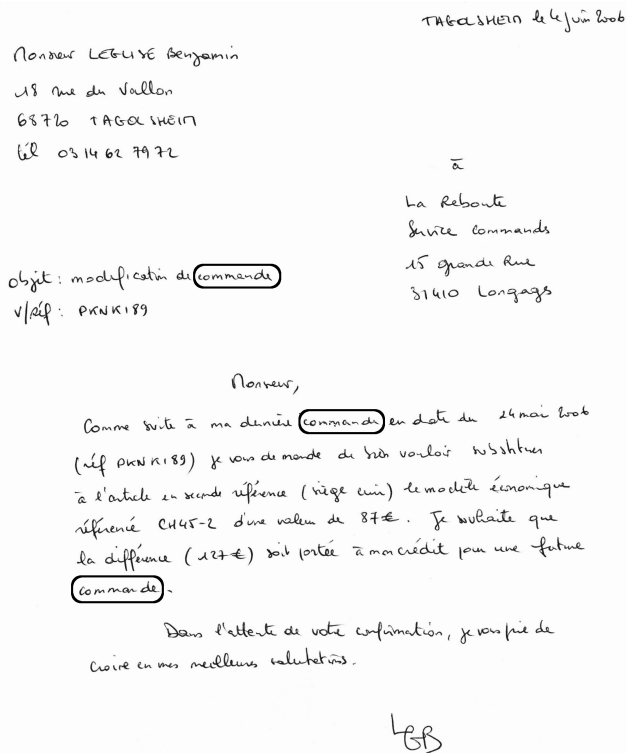 TAGOLSHEIM le 4 juin 2006
Monsieur LEGLISE Benjamin
18 rue du Vallon
68720 TAGOLSHEIM
tél 03 14 62 79 72
à
La Reboute
Service Commands
15 grande Rue
31410 Longags
objet : modification de commande
V/réf : PKNK189
Monsieur,
Comme suite à ma dernière commande en date du 24 mai 2006
(réf PKNK189) je vous demande de bien vouloir substituer
à l'article en seconde référence (siège cuir) le modèle économique
référencé CH45-2 d'une valeur de 87€. Je souhaite que
la différence (127€) soit portée à mon crédit pour une future
commande.
Dans l'attente de votre confirmation, je vous prie de
croire en mes meilleurs salutations.
LGB